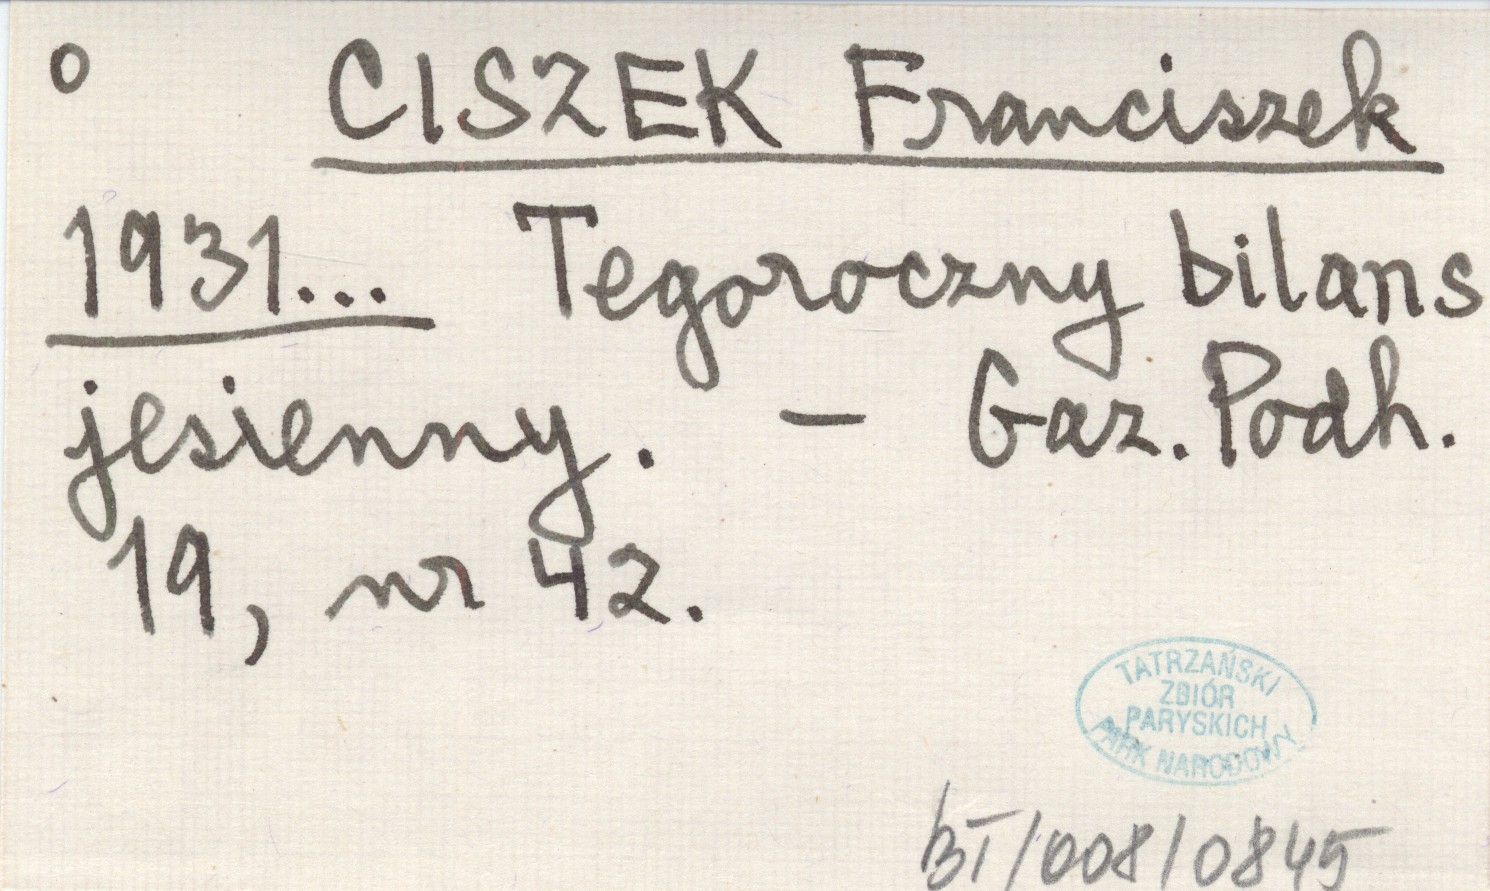 o CISZEK Franciszek
1931... Tegoroczny bilans
jesienny. – Gaz. Podh.
19, nr 42.
TATRZAŃSKI
ZBIÓR
PARYSKICH
PARK NARODOWY
BT/008/0845